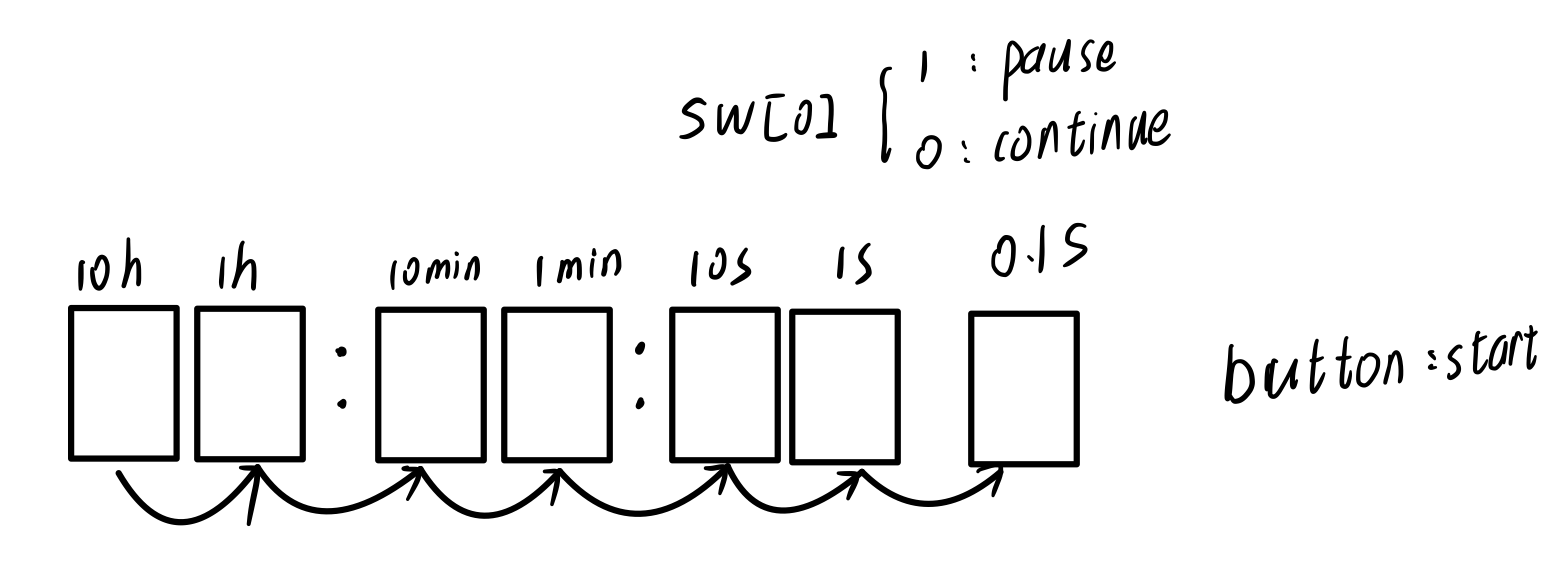 SW[0] { 1 : pause
0 : continue
10h 1h 10min 1min 10s 1s 0.1s
: :
button : start